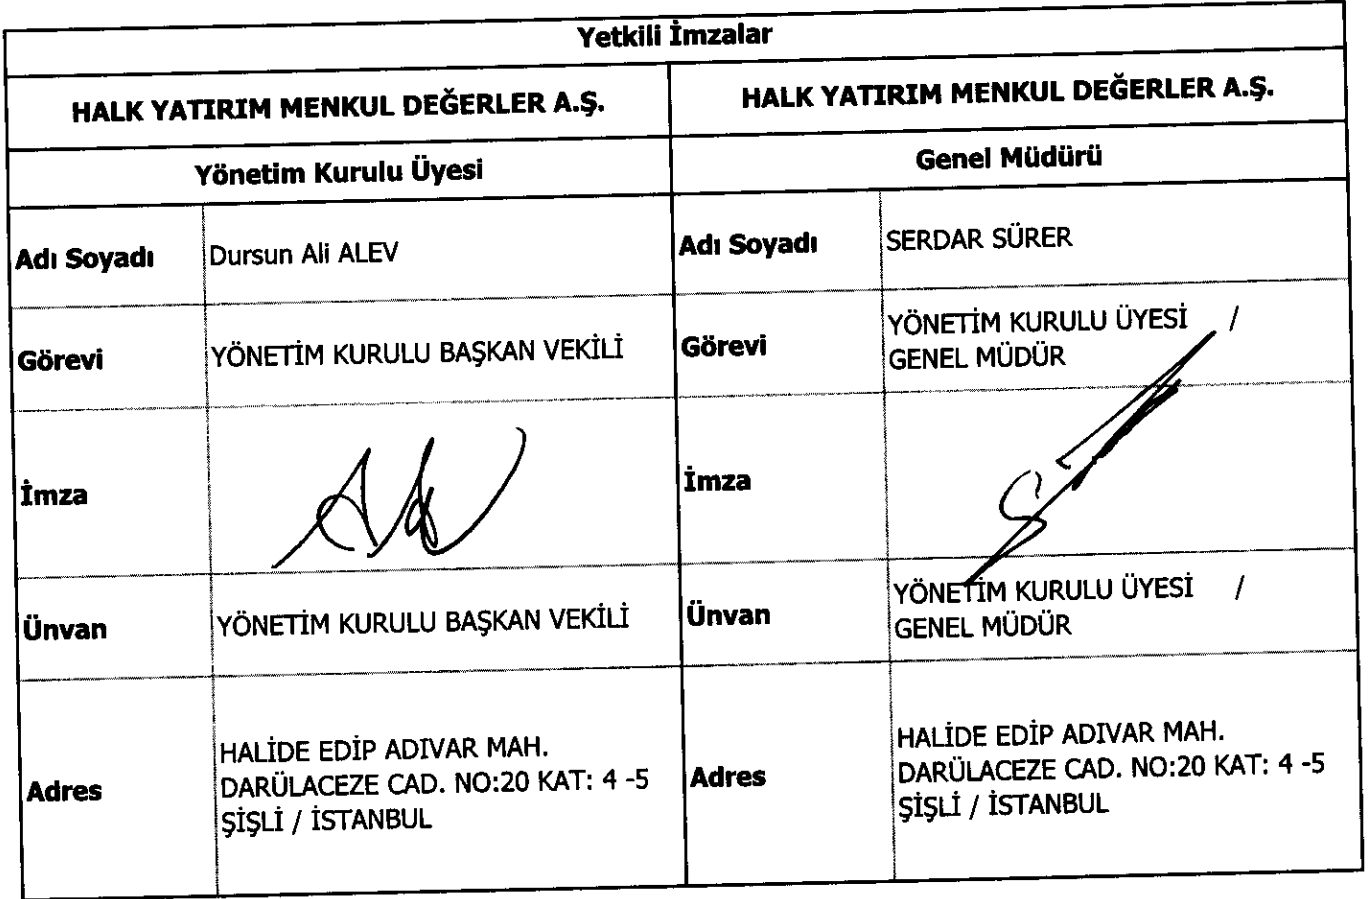 Yetkili İmzalar
HALK YATIRIM MENKUL DEĞERLER A.Ş.
HALK YATIRIM MENKUL DEĞERLER A.Ş.
Yönetim Kurulu Üyesi
Genel Müdürü
Adı Soyadı
Dursun Ali ALEV
Adı Soyadı
SERDAR SÜRER
Görevi
YÖNETİM KURULU BAŞKAN VEKİLİ
Görevi
YÖNETİM KURULU ÜYESİ /
GENEL MÜDÜR
İmza
İmza
Ünvan
YÖNETİM KURULU BAŞKAN VEKİLİ
Ünvan
YÖNETİM KURULU ÜYESİ /
GENEL MÜDÜR
Adres
HALİDE EDİP ADIVAR MAH.
DARÜLACEZE CAD. NO:20 KAT: 4 -5
ŞİŞLİ / İSTANBUL
Adres
HALİDE EDİP ADIVAR MAH.
DARÜLACEZE CAD. NO:20 KAT: 4 -5
ŞİŞLİ / İSTANBUL